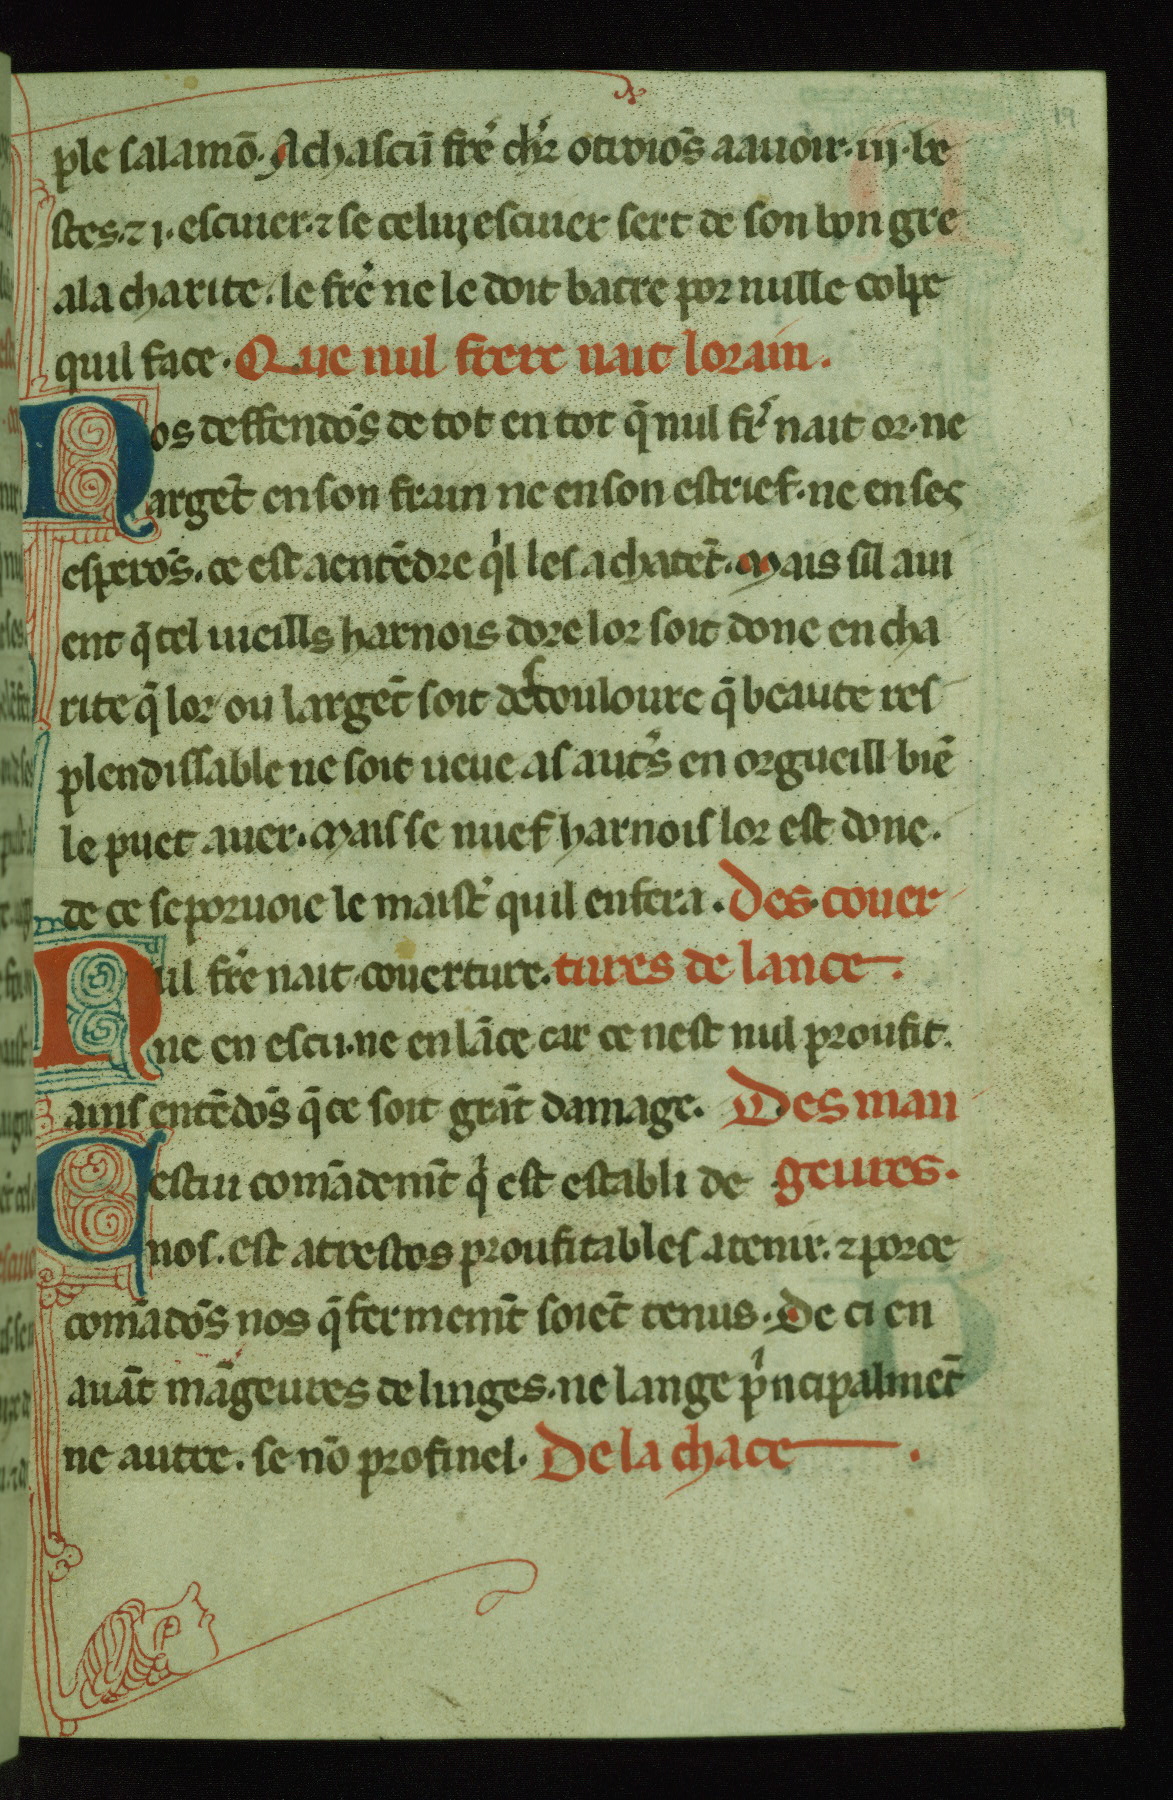 19
ple salamō. A chascū frē chr̄ otroiōs a auoir .iij. be
stes. ⁊ .i. escuier. ⁊ se celuj escuier sert de son bon gre
a la charite. le frē ne le doit batre por nulle colpe
quil face. Que nul frere nait lorain.
Nos deffendōs de tot en tot q̄ nul fr̄ nait or. ne
argēt en son frain ne en son estrief. ne en ses
esperōs. ce est a entēdre qͥl les achatēt. Mais sil aui
ent q̄ tel uieills harnois dore lor soit done en cha
rite q̄ lor ou largēt soit descouloure q̄ beaute res
plendissable ne soit ueue as autͬs en orgueill. biē
le puet auer. Mais se nuef harnois lor est done.
de ce se poruoie le maistͬ quil en fera. Des couer
Nul frē nait couerture. tures de lance.
ne en escu. ne en lāce car ce nest nul proufit.
ains entēdōs q̄ ce soit grāt damage. Des man
Cestui comādemēt qͥ est establi de geures.
nos. est a trestos proufitables a tenir. ⁊ por ce
comādōs nos q̄ fermemēt soiēt tenus. De ci en
auāt māgeures de linges. ne lange pͥncipalmēt
ne autre. se nō profinel. De la chace.